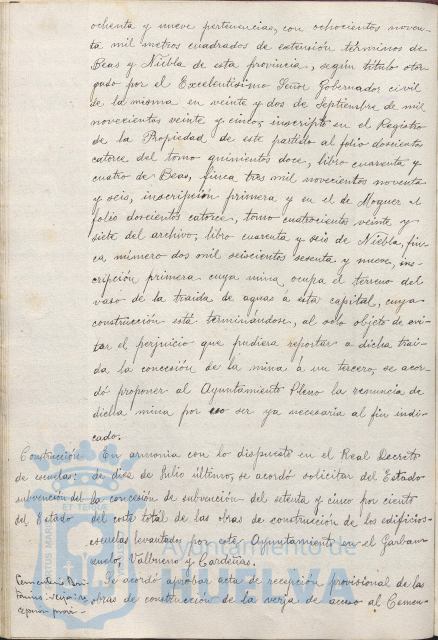 ochenta y nueve pertenencias, con ochocientos noven-
ta mil metros cuadrados de extensión términos de
Beas y Niebla de esta provincia, según título otor-
gado por el Excelentísimo Señor Gobernador civil
de la misma en veinte y dos de Septiembre de mil
novecientos veinte y cinco; inscripto en el Registro
de la Propiedad de este partido al folio doscientos
catorce del tomo quinientos doce, libro cuarenta y
cuatro de Beas, finca tres mil novecientos noventa
y seis, inscripción primera y en el de Moguer al
folio doscientos catorce, tomo cuatrocientos veinte y
siete del archivo, libro cuarenta y seis de Niebla, fin-
ca número dos mil seiscientos sesenta y nueve, ins-
cripción primera cuya mina, ocupa el terreno del
vaso de la traida de aguas á esta capital, cuya
construcción está terminándose, al solo objeto de evi-
tar el perjuicio que pudiera reportar a dicha trai-
da la concesión de la mina á un tercero, se acor-
dó proponer al Ayuntamiento Pleno la renuncia de
dicha mina por no ser ya necesaria al fin indi-
cado.
Construcción En armonía con lo dispuesto en el Real Decreto
de escuelas: de diez de Julio último, se acordó solicitar del Estado
subvención del la concesión de subvención del setenta y cinco por ciento
Estado del coste total de las obras de construcción de los edificios-
escuelas levantados por este Ayuntamiento en el Garban-
zuelo, Valbueno y Cardeñas.
Se acordó aprobar acta de recepción provisional de las
obras de construcción de la verja de acceso al Cemen-
Ayuntamiento de
HUELVA